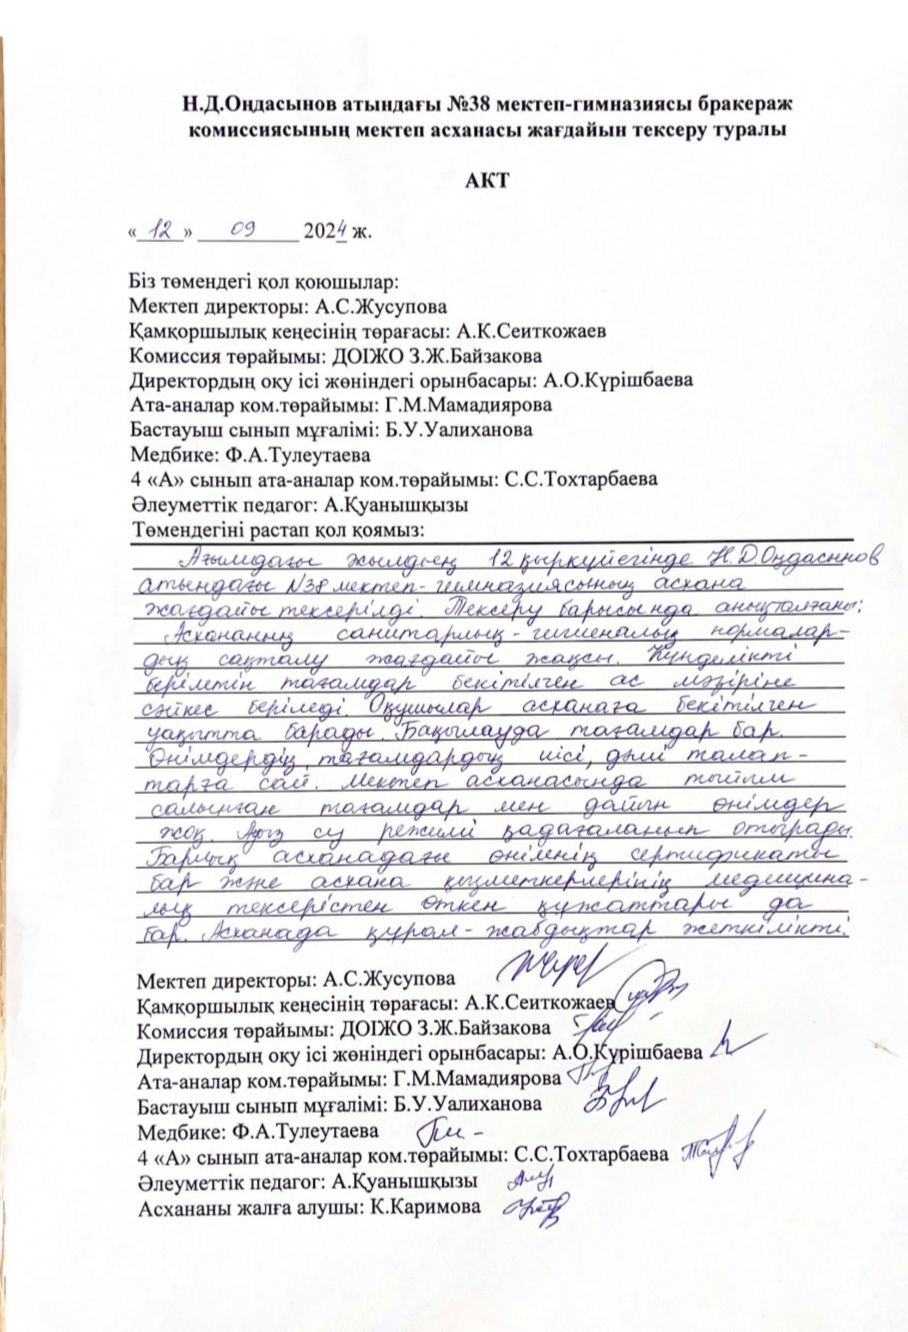 Н.Д.Оңдасынов атындағы №38 мектеп-гимназиясы бракераж
комиссиясының мектеп асханасы жағдайын тексеру туралы
АКТ
«12» 09 2024 ж.
Біз төмендегі қол қоюшылар:
Мектеп директоры: А.С.Жусупова
Қамқоршылық кеңесінің төрағасы: А.К.Сеиткожаев
Комиссия төрайымы: ДОІЖО З.Ж.Байзакова
Директордың оқу ісі жөніндегі орынбасары: А.О.Күрішбаева
Ата-аналар ком.төрайымы: Г.М.Мамадиярова
Бастауыш сынып мұғалімі: Б.У.Уалиханова
Медбике: Ф.А.Тулеутаева
4 «А» сынып ата-аналар ком.төрайымы: С.С.Тохтарбаева
Әлеуметтік педагог: А.Қуанышқызы
Төмендегіні растап қол қоямыз:
Ағымдағы жылдың 12 қыркүйегінде Н.Д.Оңдасынов
атындағы №38 мектеп-гимназиясының асхана
жағдайы тексерілді. Тексеру барысында анықталғаны:
Асхананың санитарлық-гигиеналық нормалар-
дың сақталу жағдайы жақсы. Күнделікті
берілетін тағамдар бекітілген ас мәзіріне
сәйкес беріледі. Оқушылар асханаға бекітілген
уақытта барады. Бақылауда тағамдар бар.
Өнімдердің, тағамдардың иісі, дәмі талап-
тарға сай. Мектеп асханасында тыйым
салынған тағамдар мен дайын өнімдер
жоқ. Ауыз су режимі қадағаланып отырады.
Барлық асханадағы өнімнің сертификаты
бар және асхана қызметкерлерінің медицина-
лық тексерістен өткен құжаттары да
бар. Асханада құрал-жабдықтар жеткілікті.
Мектеп директоры: А.С.Жусупова
Қамқоршылық кеңесінің төрағасы: А.К.Сеиткожаев
Комиссия төрайымы: ДОІЖО З.Ж.Байзакова
Директордың оқу ісі жөніндегі орынбасары: А.О.Күрішбаева
Ата-аналар ком.төрайымы: Г.М.Мамадиярова
Бастауыш сынып мұғалімі: Б.У.Уалиханова
Медбике: Ф.А.Тулеутаева
4 «А» сынып ата-аналар ком.төрайымы: С.С.Тохтарбаева
Әлеуметтік педагог: А.Қуанышқызы
Асхананы жалға алушы: К.Каримова